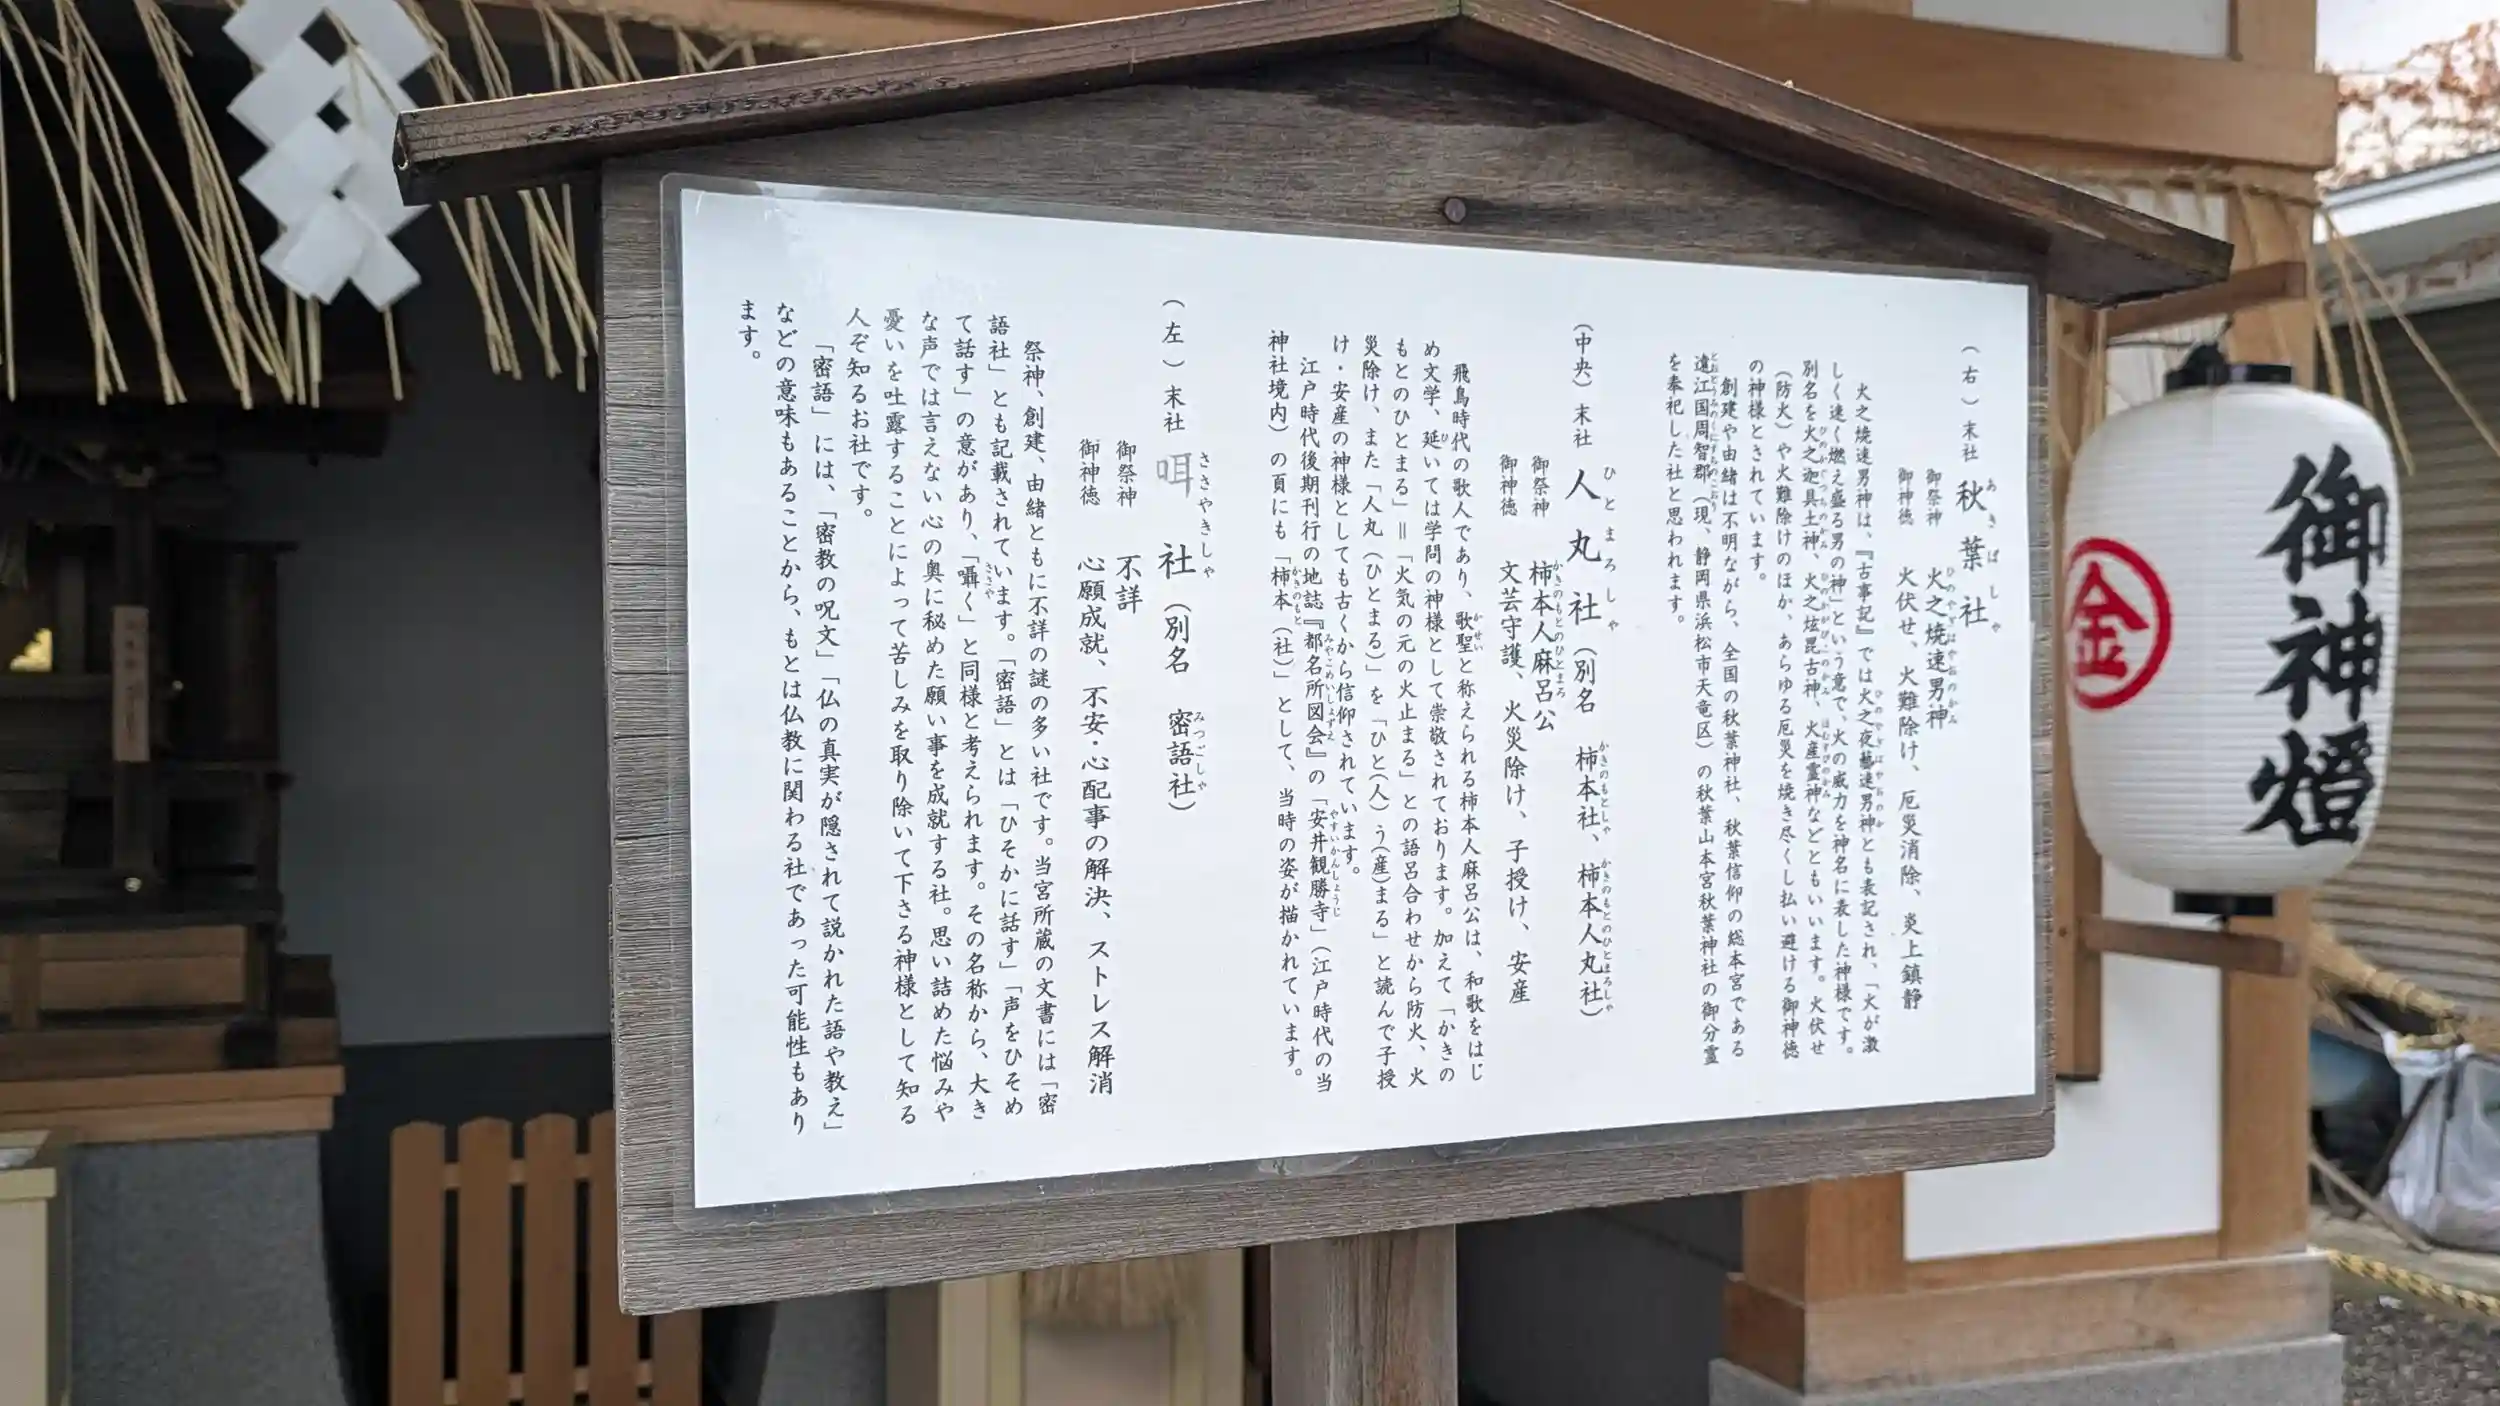 （右）末社　秋葉社
あきばしゃ
御祭神　火之焼速男神
ひのやぎはやおのかみ
御神徳　火伏せ、火難除け、厄災消除、炎上鎮静
火之焼速男神は、『古事記』では火之夜藝速男神とも表記され、「火が激
ひのやぎはやおのか
しく速く燃え盛る男の神」という意で、火の威力を神名に表した神様です。
別名を火之迦具土神、火之炫毘古神、火産霊神などともいいます。火伏せ
ひのかぐつちのかみ　ひのかがびこのかみ　ほむすびのかみ
（防火）や火難除けのほか、あらゆる厄災を焼き尽くし払い避ける御神徳
の神様とされています。
創建や由緒は不明ながら、全国の秋葉神社、秋葉信仰の総本宮である
遠江国周智郡（現、静岡県浜松市天竜区）の秋葉山本宮秋葉神社の御分霊
とおとうみのくにすちのこおり
を奉祀した社と思われます。
（中央）末社　人丸社（別名　柿本社、柿本人丸社）
ひとまろしゃ　かきのもとしゃ　かきのもとのひとまろしゃ
御祭神　柿本人麻呂公
かきのもとのひとまろ
御神徳　文芸守護、火災除け、子授け、安産
飛鳥時代の歌人であり、歌聖と称えられる柿本人麻呂公は、和歌をはじ
かせい
め文学、延いては学問の神様として崇敬されております。加えて「かきの
ひ
もとのひとまる」＝「火気の元の火止まる」との語呂合わせから防火、火
災除け、また「人丸（ひとまる）」を「ひと(人)う(産)まる」と読んで子授
け・安産の神様としても古くから信仰されています。
江戸時代後期刊行の地誌『都名所図会』の「安井観勝寺」（江戸時代の当
みやこめいしょずえ　やすいかんしょうじ
神社境内）の頁にも「柿本（社）」として、当時の姿が描かれています。
かきのもと
（左）末社　咡社（別名　密語社）
ささやきしゃ　みつごしゃ
御祭神　不詳
御神徳　心願成就、不安・心配事の解決、ストレス解消
祭神、創建、由緒ともに不詳の謎の多い社です。当宮所蔵の文書には「密
語社」とも記載されています。「密語」とは「ひそかに話す」「声をひそめ
て話す」の意があり、「囁く」と同様と考えられます。その名称から、大き
ささや
な声では言えない心の奥に秘めた願い事を成就する社。思い詰めた悩みや
憂いを吐露することによって苦しみを取り除いて下さる神様として知る
人ぞ知るお社です。
「密語」には、「密教の呪文」「仏の真実が隠されて説かれた語や教え」
などの意味もあることから、もとは仏教に関わる社であった可能性もあり
ます。
御神燈
金